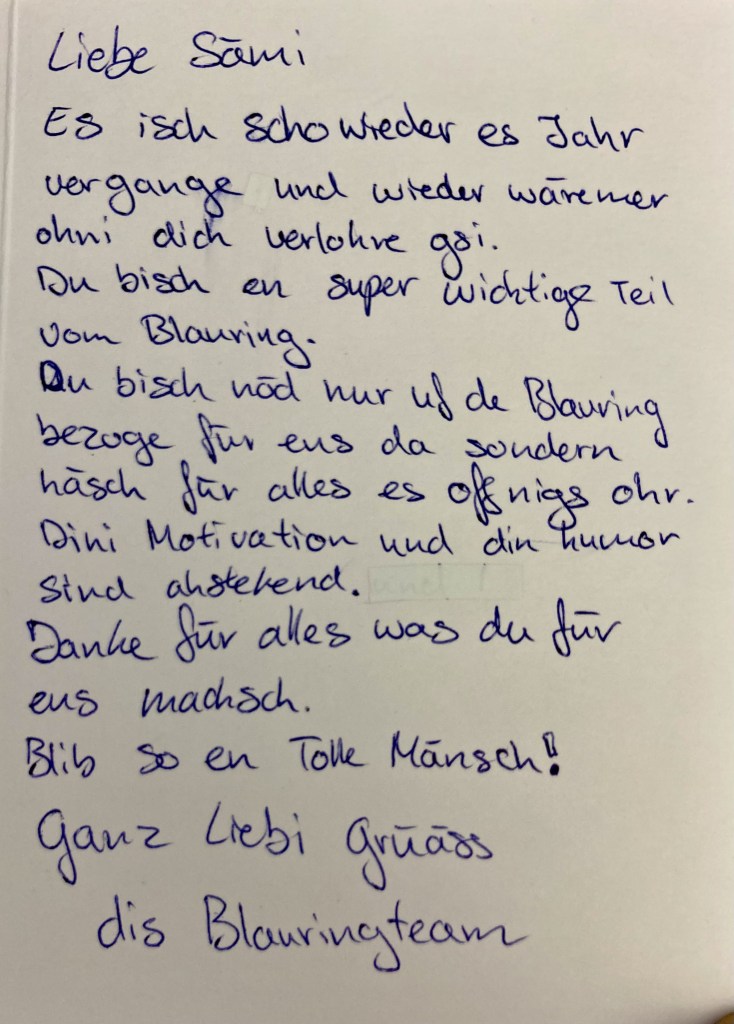 Liebe Sämi
Es isch scho wieder es Jahr
vergange und wieder wäremer
ohni dich verlohre gsi.
Du bisch en super wichtige Teil
vom Blauring.
Du bisch nöd nur uf de Blauring
bezoge für eus da sondern
häsch für alles es offnigs ohr.
Dini Motivation und din humor
sind ahstekend.
Danke für alles was du für
eus machsch.
Blib so en Tolle Mänsch!
Ganz Liebi Grüäss
dis Blauringteam